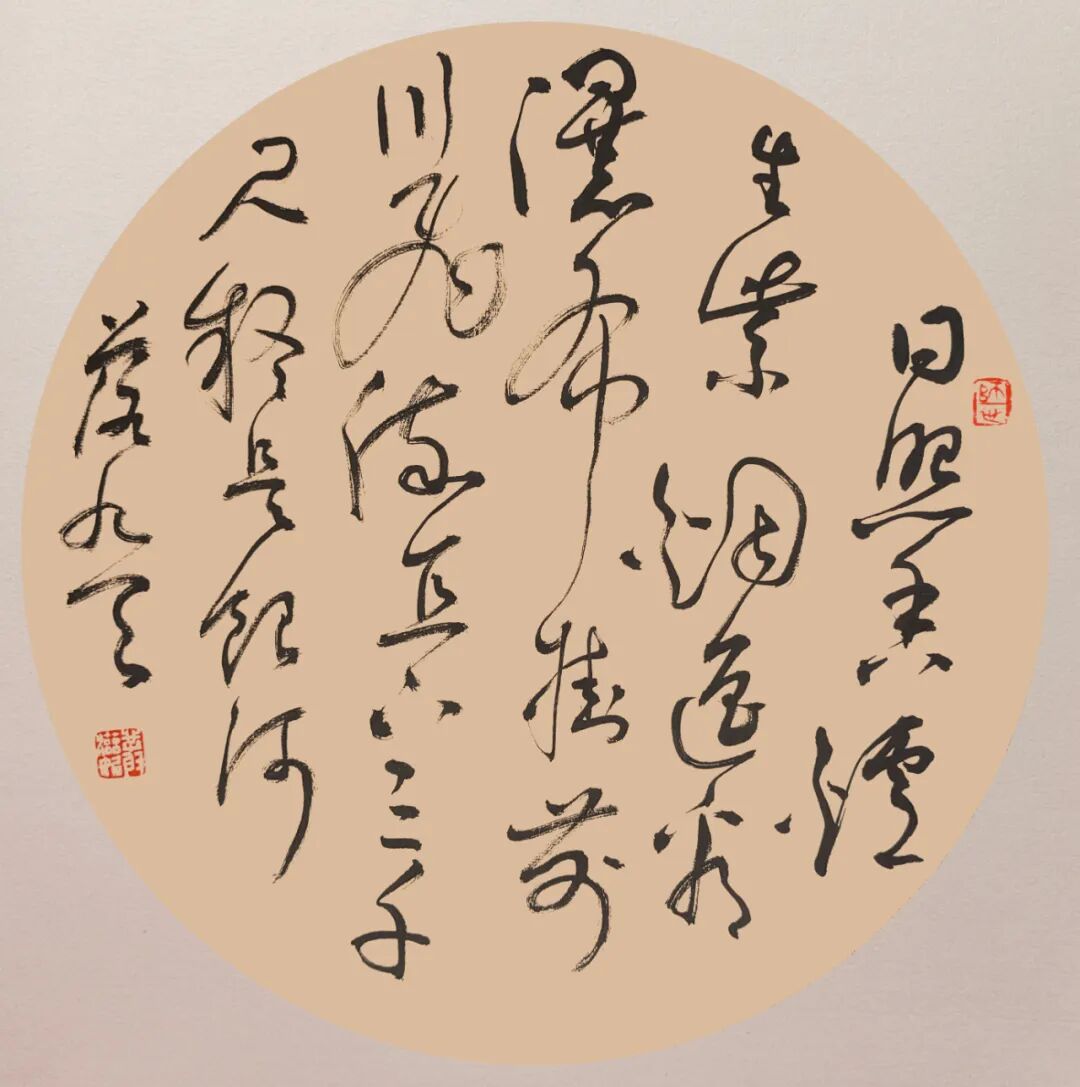 日照香爐
生紫烟遙看
瀑布掛前
川飛流直下三千
尺疑是銀河
落九天